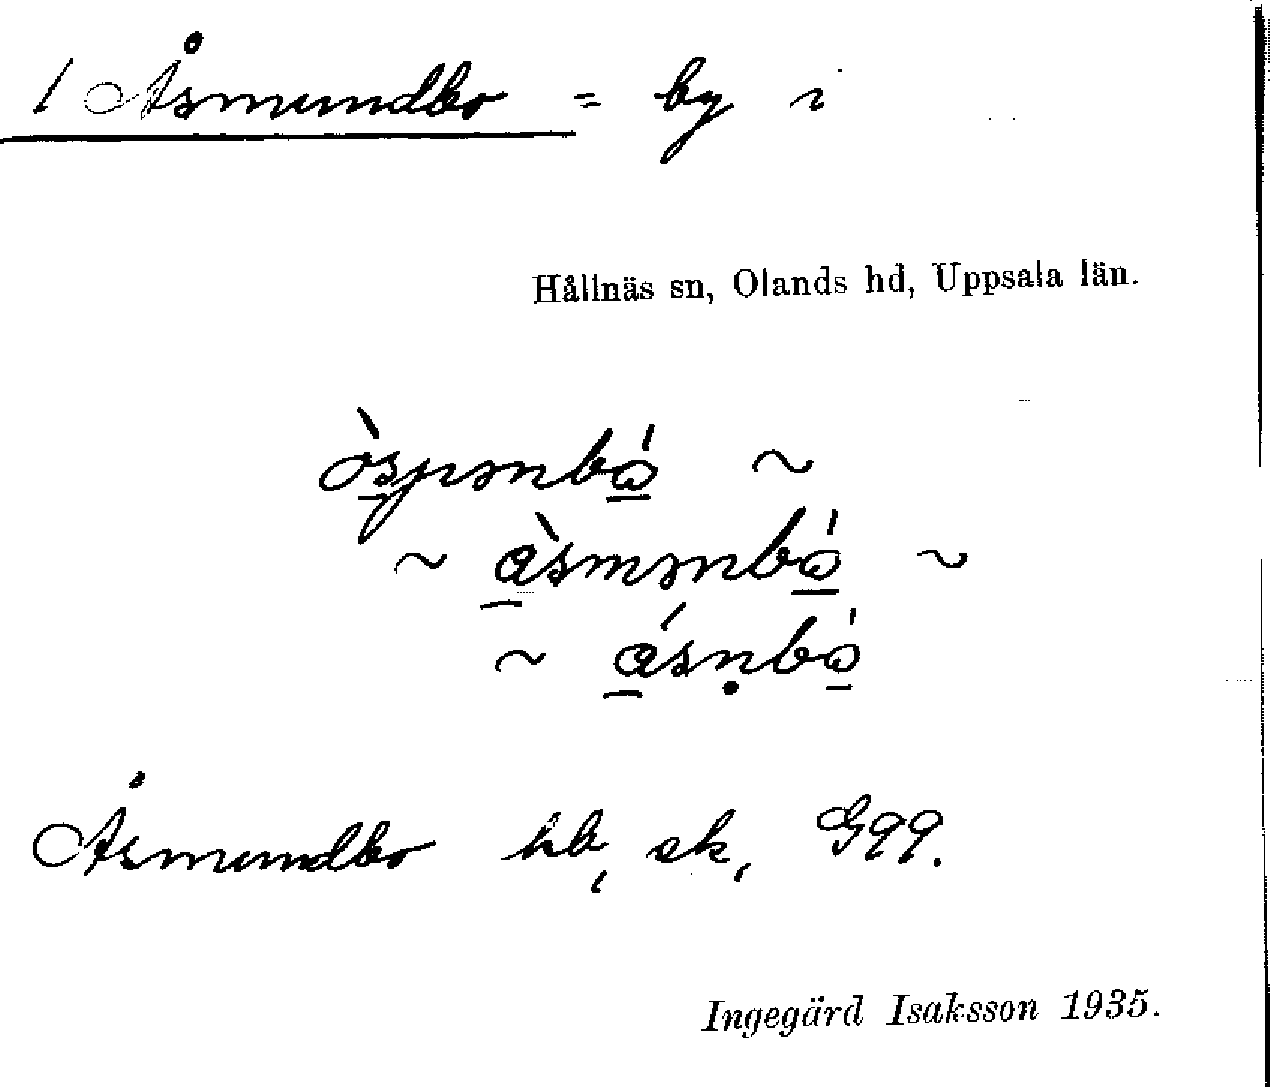 1 Åsmundbo = by i
Hållnäs sn, Olands hd, Uppsala län.
òspənbó ~
~ àsmənbó ~
~ ásṇbó
Åsmundbo hb, sk, G99.
Ingegärd Isaksson 1935.